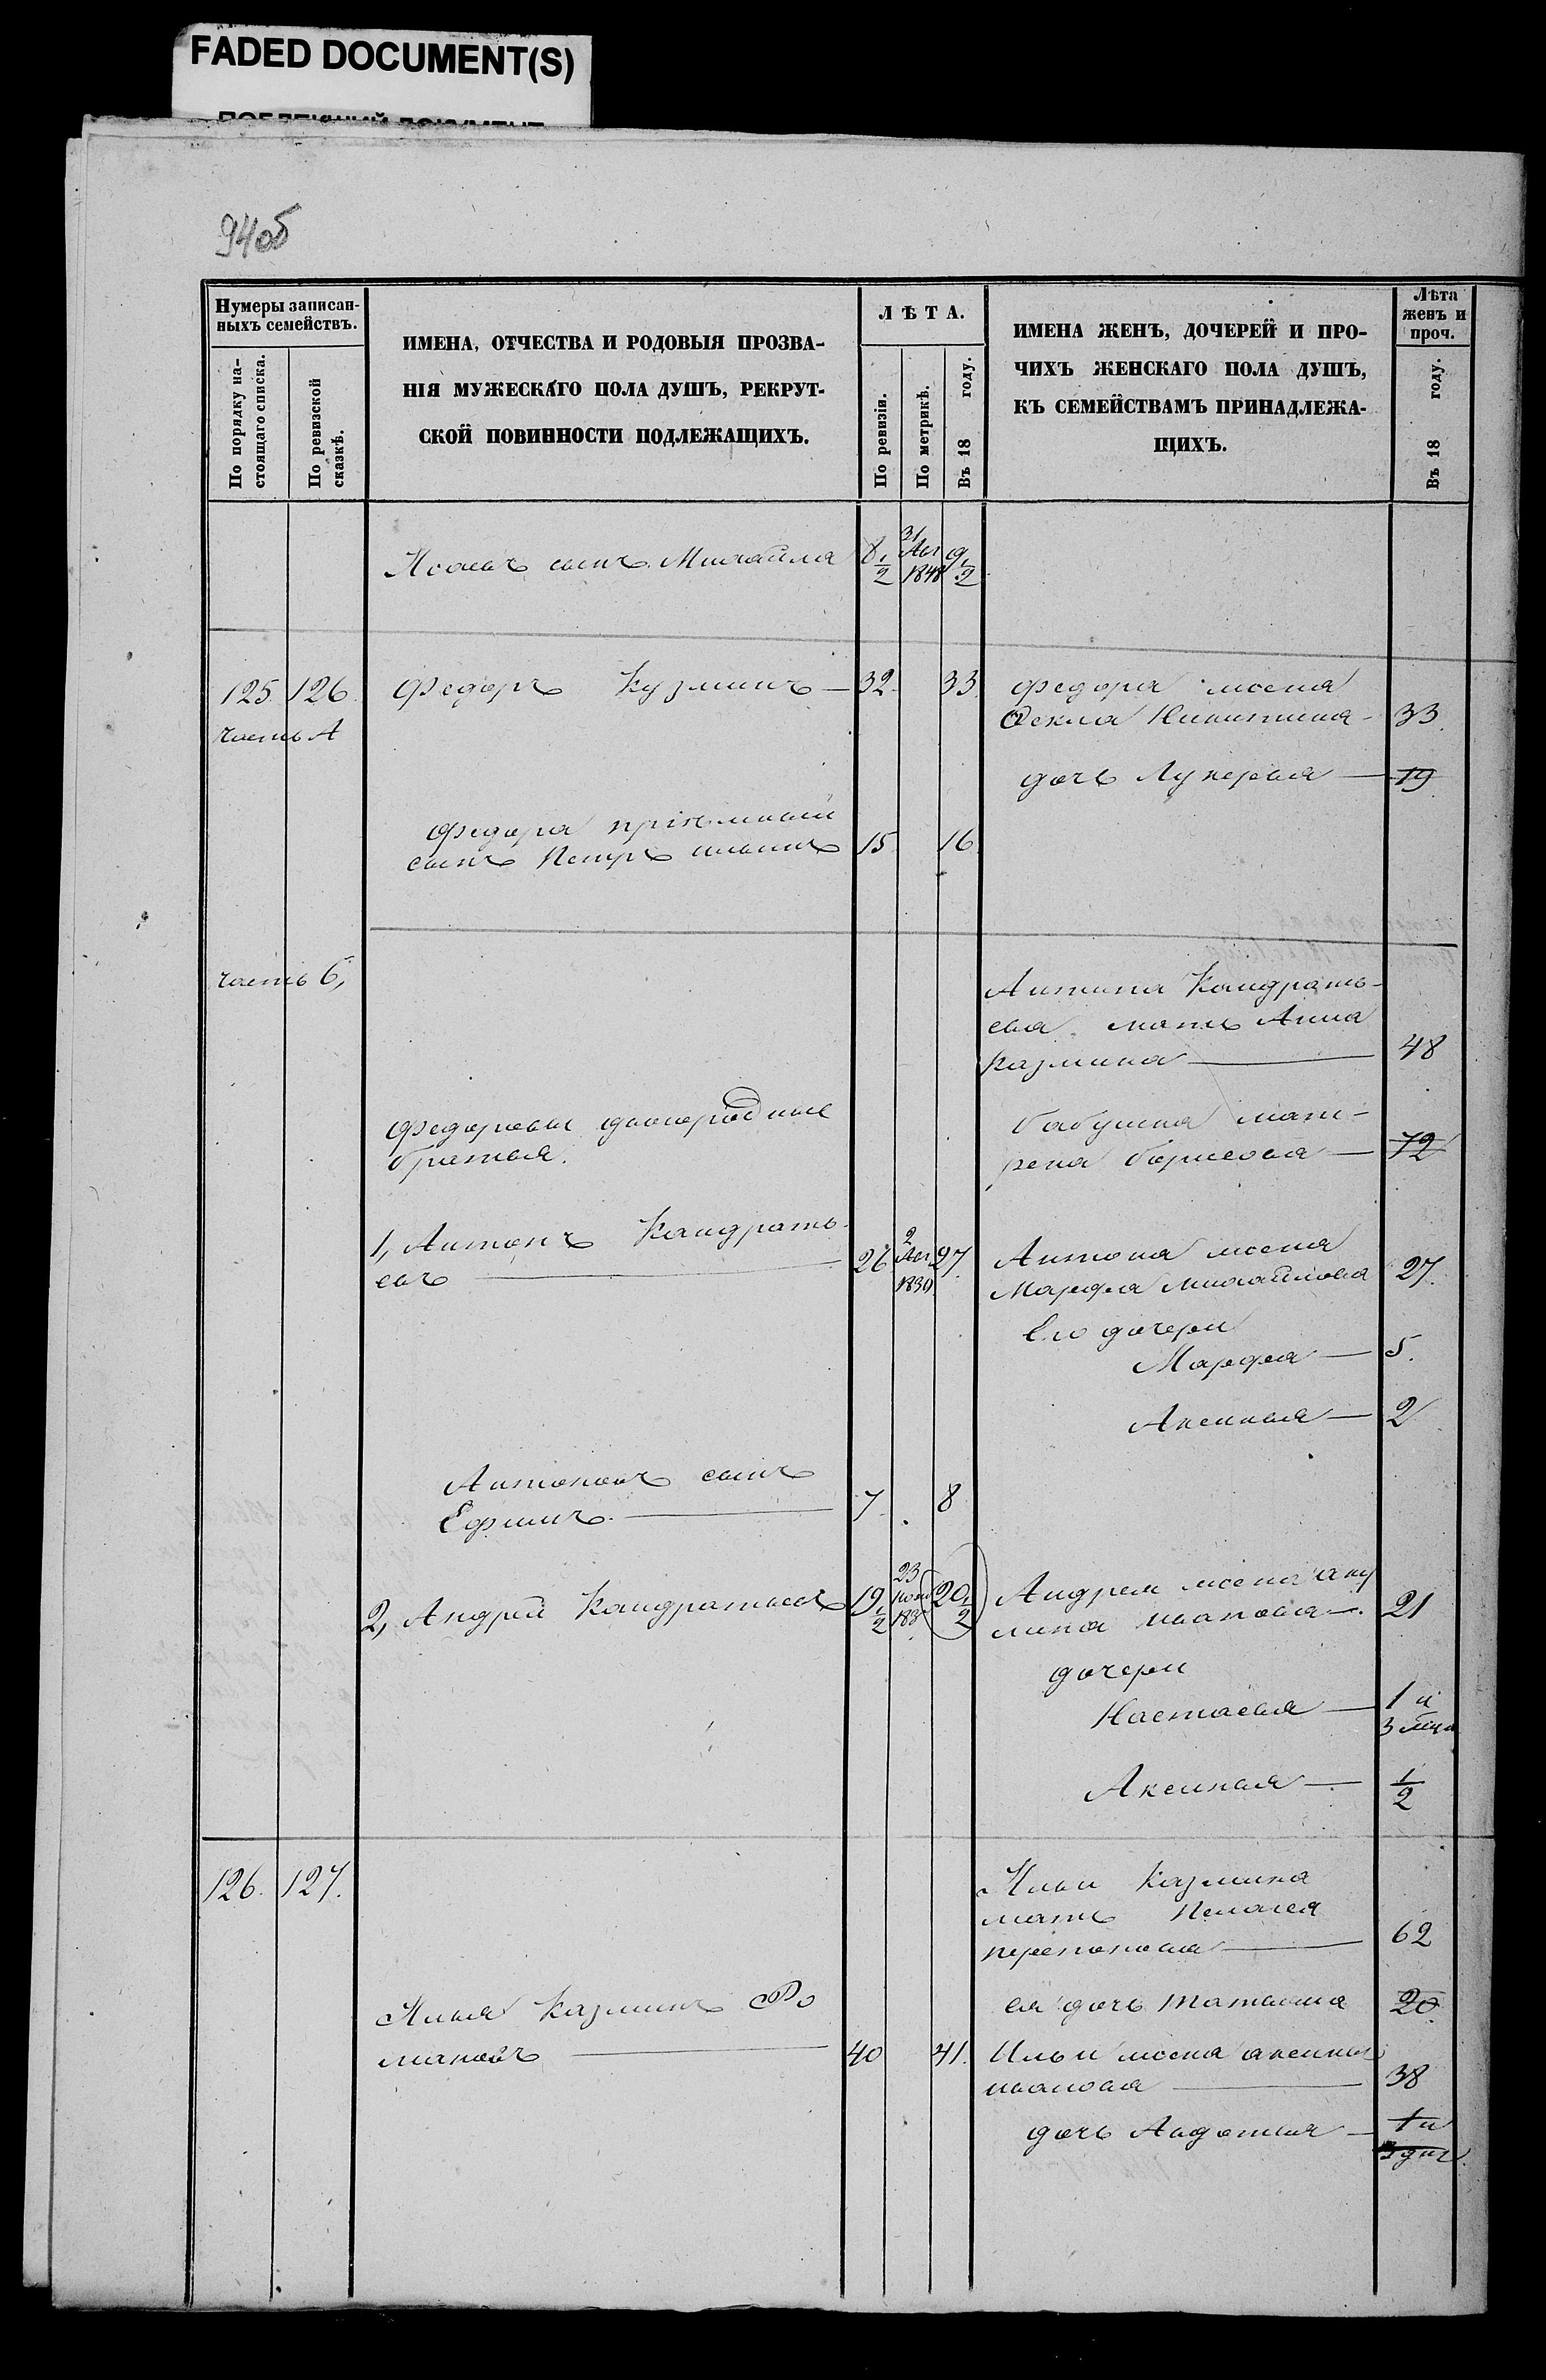 FADED DOCUMENT(S)
94об
Нумеры записан-
ныхъ семействъ.
По порядку на-
стоящаго списка.
По ревизской
сказкѣ.
ИМЕНА, ОТЧЕСТВА И РОДОВЫЯ ПРОЗВА-
НІЯ МУЖЕСКАГО ПОЛА ДУШЪ, РЕКРУТ-
СКОЙ ПОВИННОСТИ ПОДЛЕЖАЩИХЪ.
ЛѢТА.
По ревизіи.
По метрикѣ.
Въ 18 году.
ИМЕНА ЖЕНЪ, ДОЧЕРЕЙ И ПРО-
ЧИХЪ ЖЕНСКАГО ПОЛА ДУШЪ,
КЪ СЕМЕЙСТВАМЪ ПРИНАДЛЕЖА-
ЩИХЪ.
Лѣта
женъ и
проч.
Въ 18 году.
сынъ Михайла 8 1/2 31 1848 9 1/2
125 126 Федоръ Кузминъ 32 33
часть А
Федора жена
Фекла Никитина 33
дочь Лукерья 19
Федора пріемный
сынъ Петръ ильинъ 15 16
часть б,
Антипа Кандрать-
ева мать Анна
Казмина 48
Федоровы двоюродные
братья.
бабушка мат-
рена борисова 72
1, Антонъ Кандрать-
евъ 26 2 27
Антона жена
Марфа михайлова 27
Его дочери
Марфа 5
Аксинья 2
Антоновъ сынъ
Ефимъ 7 8
2, Андрей Кандратьевъ 19 1/2 23 20 1/2
Андрея жена аку
лина иванова 21
дочери
Настасья 1 и
3 мца
Аксинья 1/2
126. 127.
Ильи Казмина
мать Пелагея
62
Илья Казминъ Ро
мановъ 40 41
ея дочь татьяна 20
Ильи жена аксинья
иванова 38
дочь Авдотья 1 и
3 дня